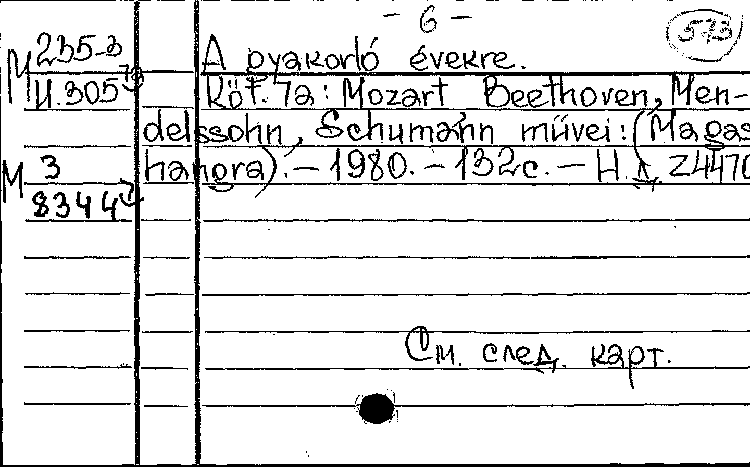 - 6 -
573
M 235-3
И.305 73
A gyakorló évekre.
Köt. 7a: Mozart Beethoven, Men-
delssohn, Schumánn müvei: (Magas
hangra). - 1980. - 132с. - Н.д. Z4470
M 3
8344
См. след. карт.